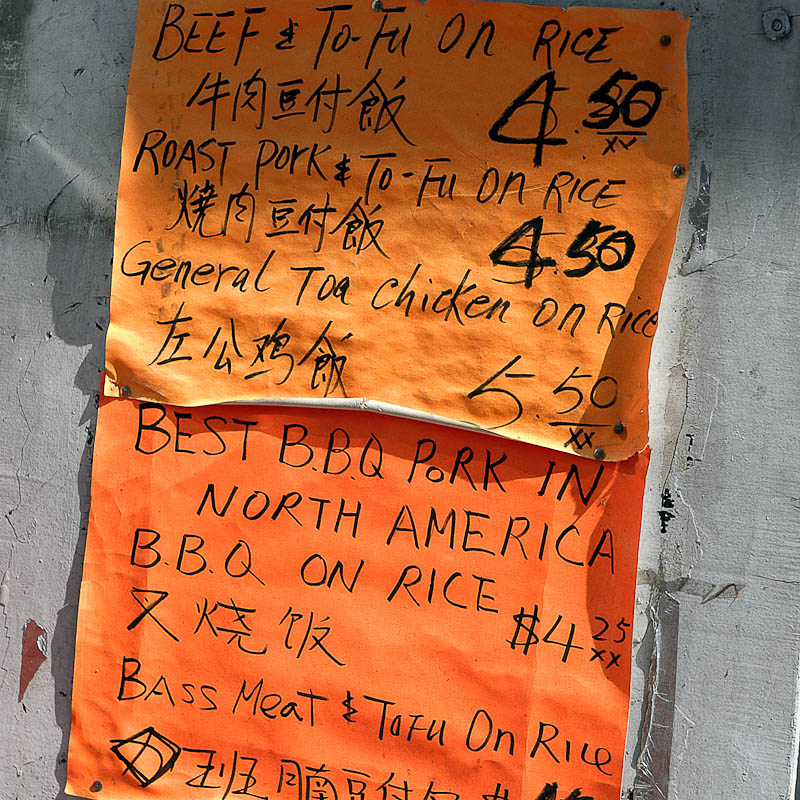 BEEF & TO-FU ON RICE
牛肉豆付飯 4.50
XX
ROAST PORK & TO-FU ON RICE
燒肉豆付飯 4.50
General Toa chicken on Rice
左公鸡飯 5.50
XX
BEST B.B.Q PORK IN
NORTH AMERICA
B.B.Q ON RICE
叉烧饭 $4 25
XX
BASS MeaT & TOFU On RicE
班腩豆付